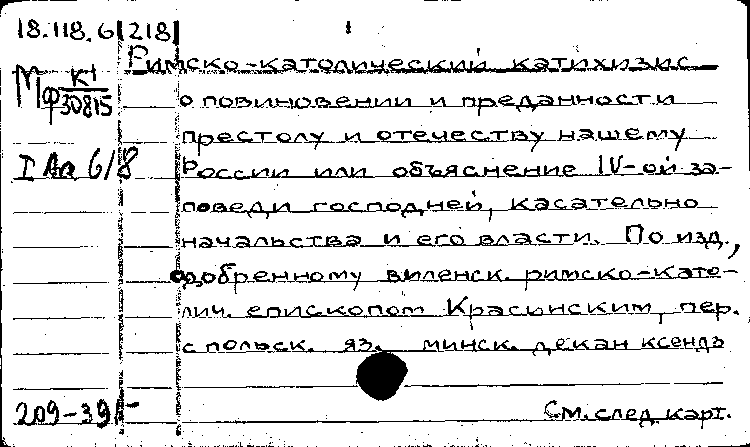 18.118.6 218 1
Римско-католический катихизис
Мф К1/30815 о повиновении и преданности
престолу и отечеству нашему
I Аа 6/8 России или объяснение IV-ой за-
поведи господней, касательно
начальства и его власти. По изд.,
одобренному виленск. римско-като-
лич. епископом Красинским, пер.
с польск. яз. минск. декан ксендз
209-39 См. след. карт.